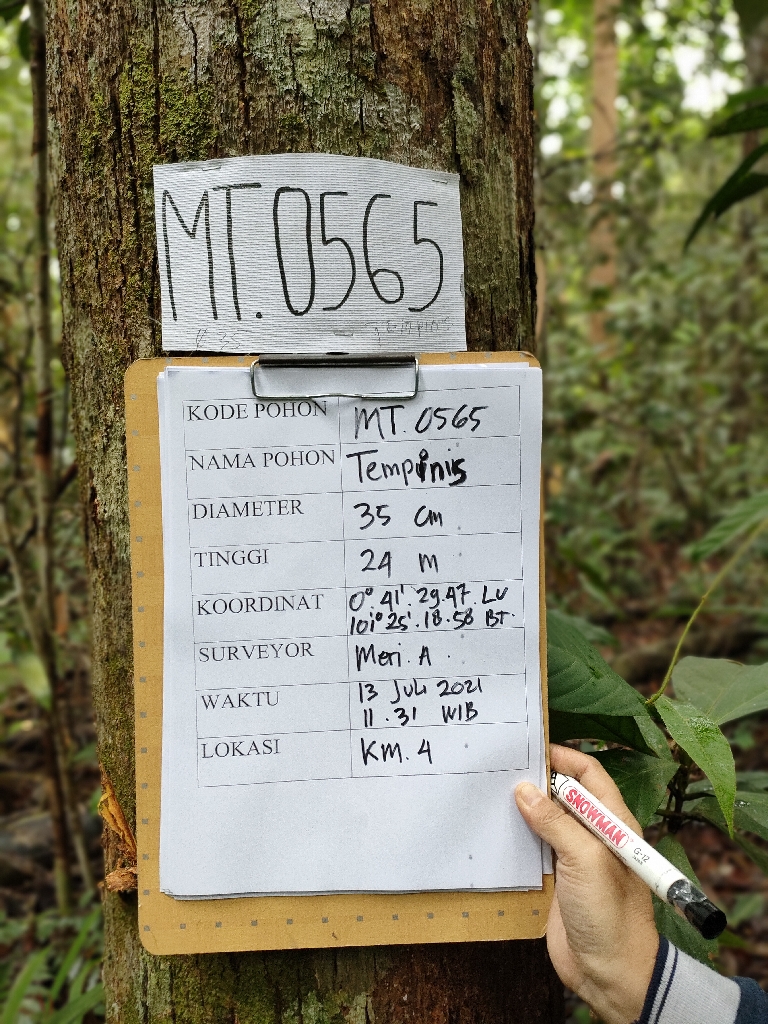 MT.0565
KODE POHON MT. 0565
NAMA POHON Tempinis
DIAMETER 35 cm
TINGGI 24 m
KOORDINAT 0° 41'. 29.47. LU
101° 25'. 18.58 BT.
SURVEYOR Meri. A.
WAKTU 13 Juli 2021
11.31 WIB
LOKASI KM. 4
SNOWMAN
G-12